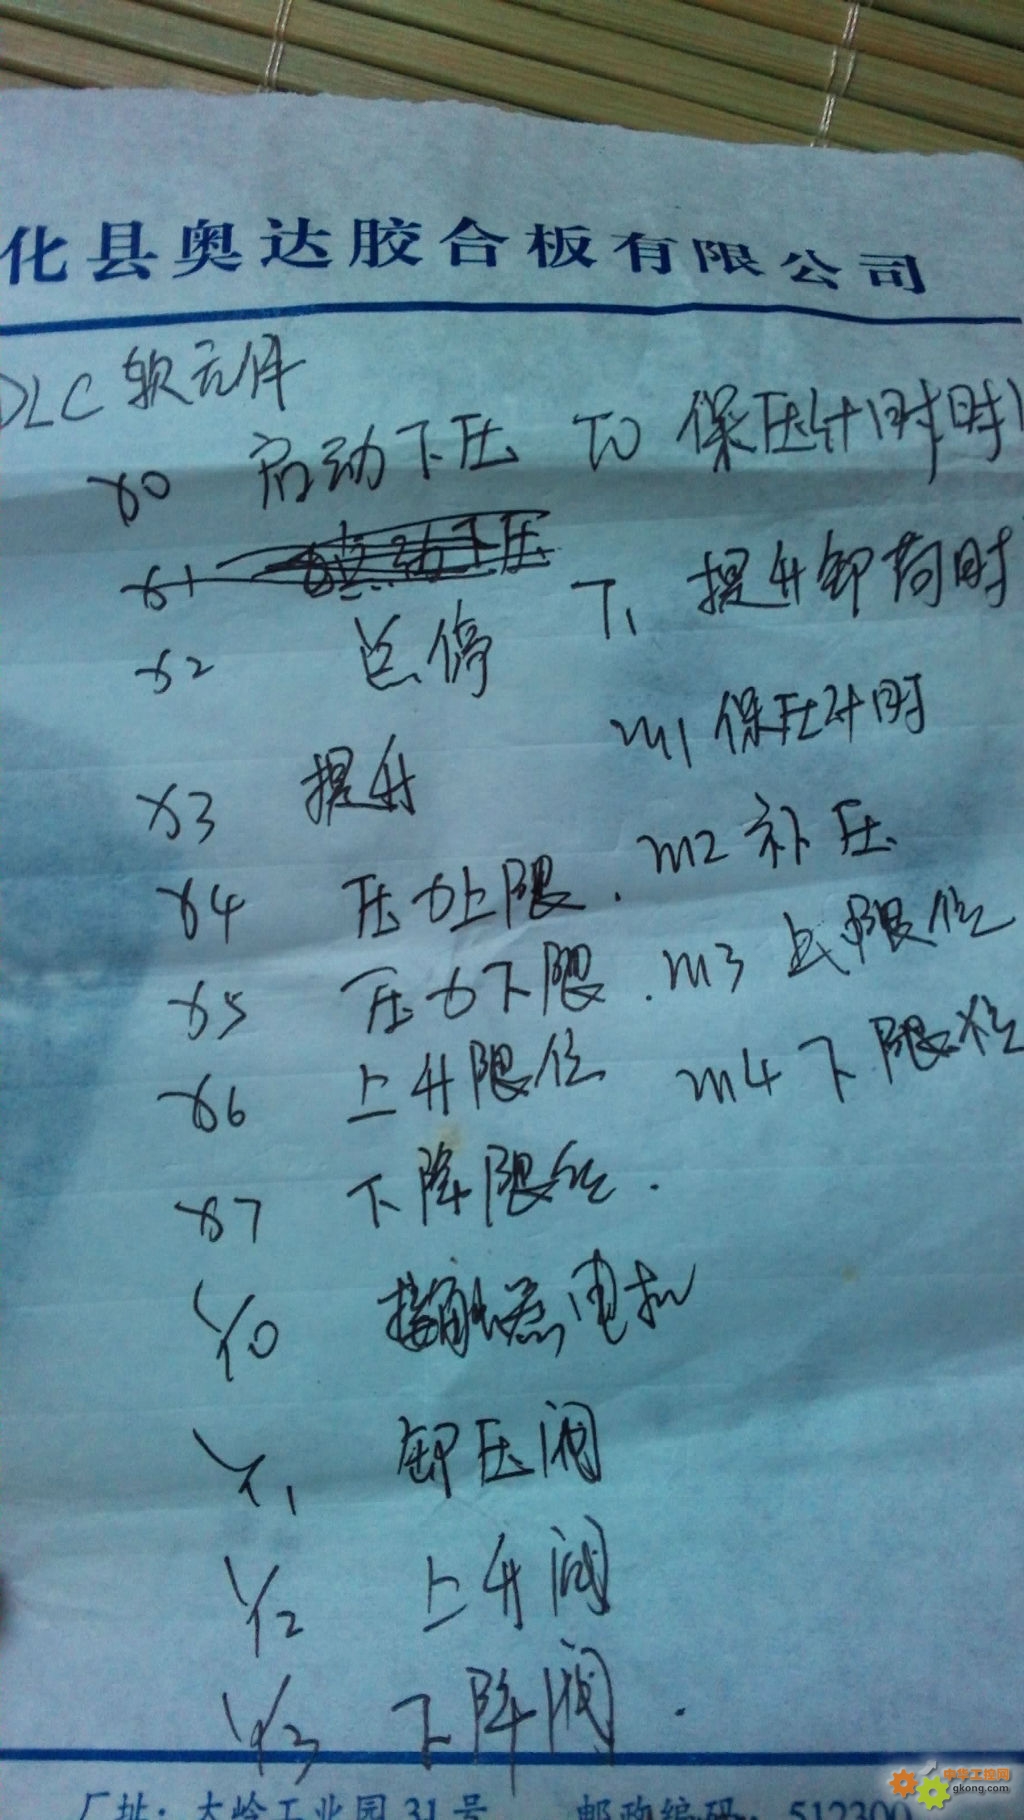 化县奥达胶合板有限公司
PLC 软元件
X0 启动下压 T0 保压计时时
X1
X2 总停 T1 提升卸荷时
X3 提升 M1 保压计时
X4 压力上限. M2 补压
X5 压力下限. M3 上限位
X6 上升限位 M4 下限位
X7 下降限位.
Y0 接触器电机
Y1 卸压阀
Y2 上升阀
Y3 下降阀.
厂址:大岭工业园31号 邮政编码:512300
中华工控网
gkong.com